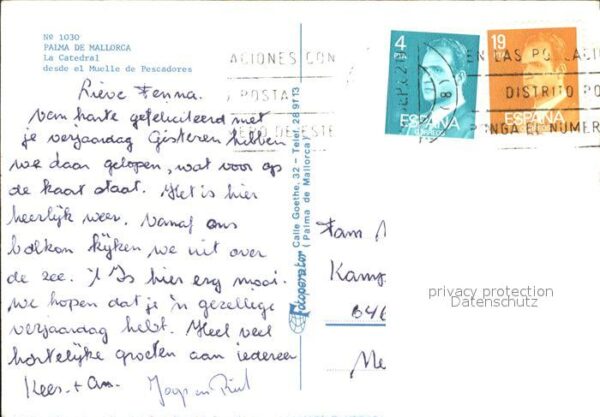 Nº 1030
PALMA DE MALLORCA
La Catedral
desde el Muelle de Pescadores
Lieve Fenna.
Van harte gefeliciteerd met
je verjaardag Gisteren hebben
we daar gelopen, wat voor op
de kaart staat. Het is hier
heerlijk weer. Vanaf ons
balkon kijken we uit over
de zee. 't Is hier erg mooi.
We hopen dat je 'n gezellege
verjaardag hebt. Heel veel
hartelijke groeten aan iedereen
Kees + Ans. Joop en Riet
Fotoperator Calle Goethe, 32 - Telef. 289113
(Palma de Mallorca)
4 PTA
ESPAÑA
CORREOS
19 PTA
ESPAÑA
CORREOS
ACIONES CON
POSTA
EN LAS POBLACIO
DISTRITO PO
PONGA EL NUMER
Fam
Kamp
Me
privacy protection
Datenschutz